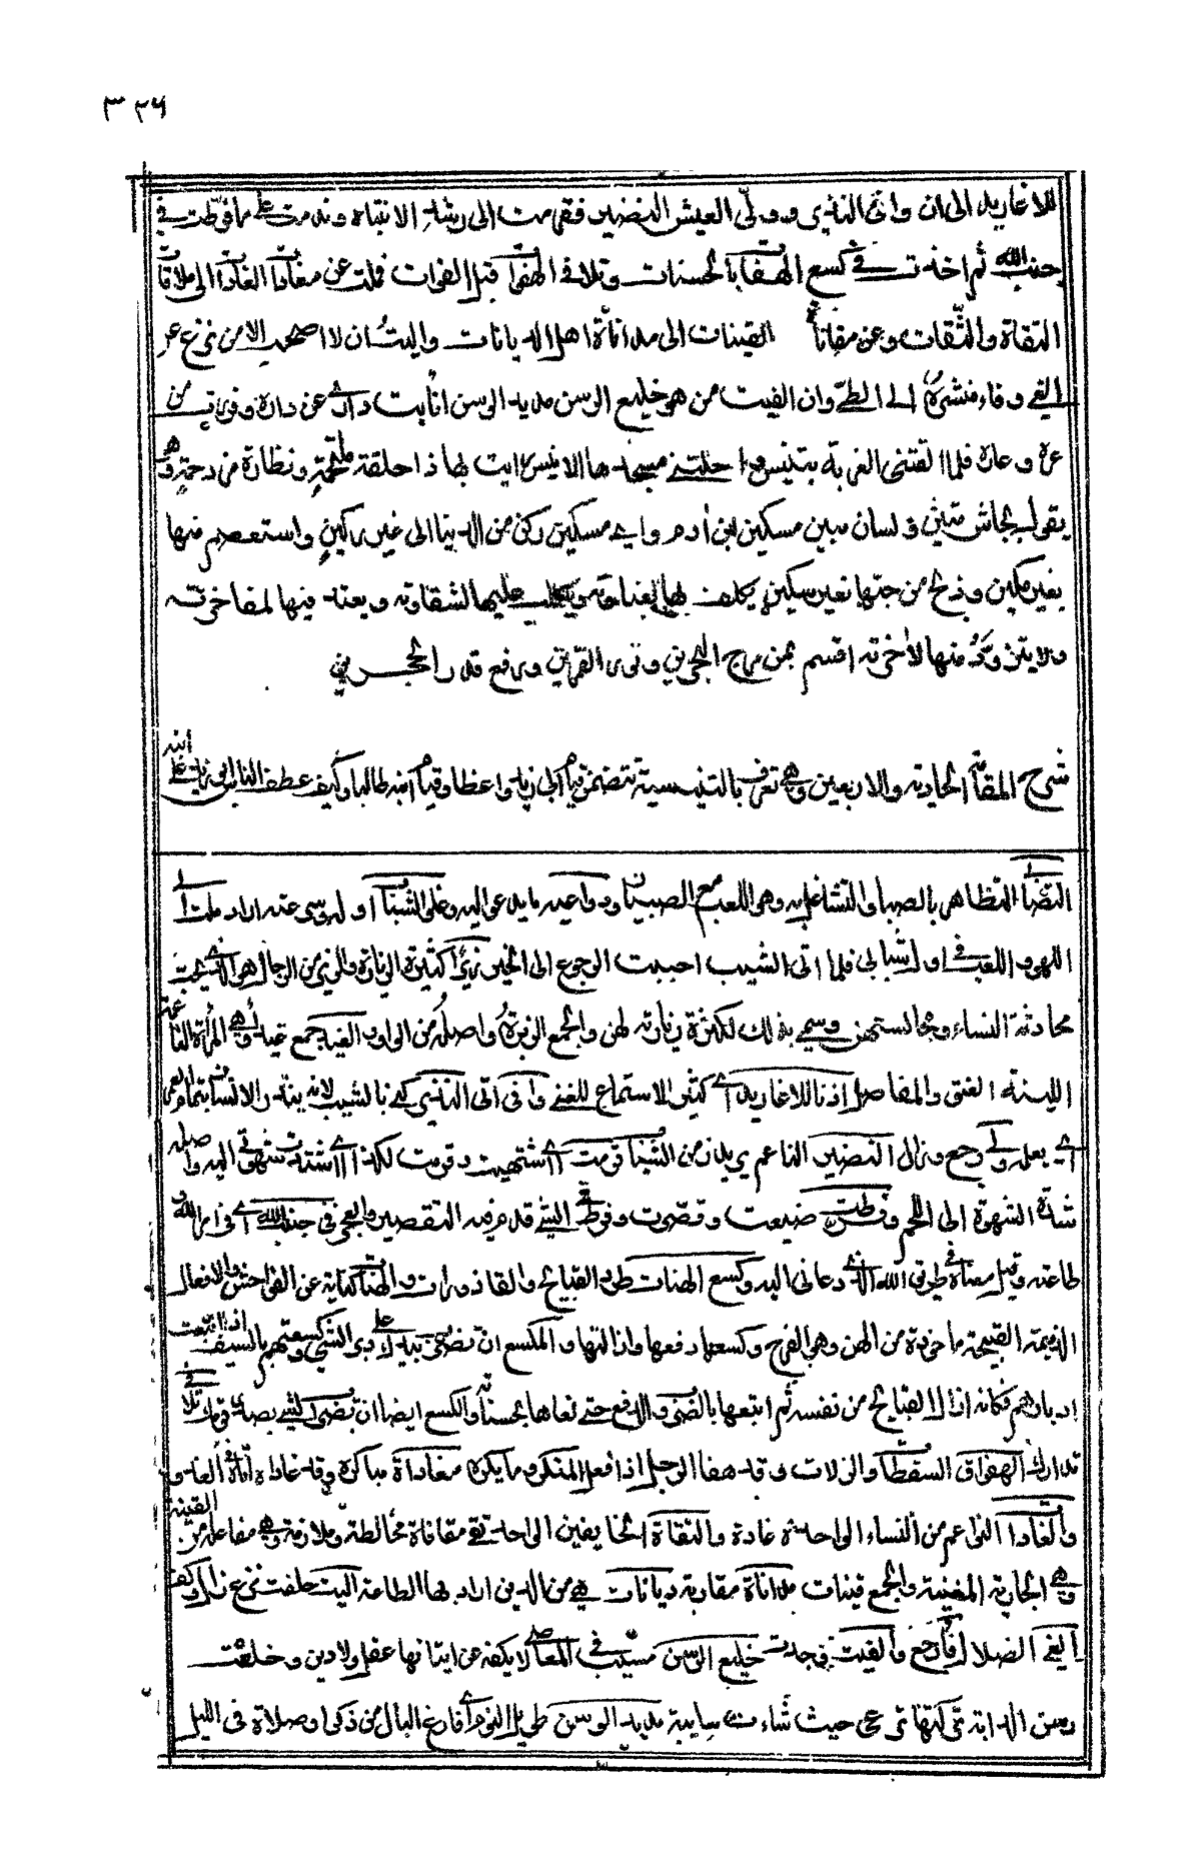 ٣٢٦
للاغاريد الى ان وافى النذير وولّى العيش النضير فقرمت الى رشد الانتباه وندمت على ما فرّطت في
جنب الله ثم اخذت في كسع الهنات بالحسنات وتلافي الهفوات قبل الفوات فملت عن مغاداة الغادات الى ملاقات
التقاة والثقات وعن مقاناة القينات الى مداناة اهل الديانات واليت ان لا اصحب الا من نزع عن
الغي وفاء منشره الى الطي وان الفيت من هو خليع الرسن مديد الوسن انأيت داري عن داره وفررت من
عره وعاره فلما القتني الغربة بتنيس واحلتني مسجدها الانيس رايت بها ذا حلقة ملتحمة ونظارة مزدحمة وهو
يقول بجاش متين ولسان مبين مسكين ابن ادم واي مسكين ركن من الدنيا الى غير ركين واستعصم منها
بغير مكين وذبح من حبها بغير سكين يكلف بها لغباوته ويكلب عليها لشقاوته ويعتد فيها لمفاخرته
ولا يتزود منها لاخرته اقسم بمن مرج البحرين ونور القمرين ورفع قدر الحجرين
شرح المقامة الحادية والاربعين وهي تعرف بالتنيسية تتضمن قيام ابي زيد واعظا وقيام ابنه طالبا وكيف عطف الناس ابو زيد على ابنه
التصابي التظاهر بالصبا والتشاغل به وهو اللعب مع الصبيان ودواعيه ما يدعو اليه وغلو الشباب اوله وسرعته اراد ملت الى
اللهو واللعب في اول شبابي فلما اتى الشيب احببت الرجوع الى الخير زيرا كثير الزيارة والزير من الرجال هو الذي يحب
محادثة النساء ومجالستهن وسمي بذلك لكثرة زيارته لهن والجمع الزيرة واصله من الواو الغيد جمع غيداء وهي المراة الناعمة
اللينة العنق والمفاصل اذنا للاغاريد اي كثير الاستماع للغنى وافى اتى النذير كني بالشيب لانه ينذر الانسان بتمام العمر
اي يعلمه ولى رجع وزال النضير الناعم يريد زمن الشباب قرمت اي اشتهيت وقرمت لكذا اي اشتدت شهوتي اليه واصله
شدة الشهوة الى اللحم وفرطت ضيعت وقصرت وفرط في الشي قدم فيه التقصير والعجز في جنب الله اي في امر الله و
طاعته وقيل معناه في طريق الله الذي دعاني اليه وكسع الهنات طرد القبائح والقاذورات والهنات كناية عن الفواحش والافعال
الذميمة القبيحة ماخوذة من الهن وهي الفرج وكسعها دفعها وازالتها والكسع ان تضرب بيدك على دبر الشي وكسعتهم بالسيف اذا اتبعت
ادبارهم فكانه ازال القبائح من نفسه ثم اتبعها بالضرب والدفع حتى نفاها بحسناته والكسع ايضا ان تضرب الشي بصدر قدمك تلافي
تدارك الهفوات السقطات والزلات وقد هفا الرجل اذا فعل المنكر وما يكره مغاداة مباكرة وقد غاداه اتاه في الغد و
والغادات النواعم من النساء الواحدة غادة والتقاة الخايفين الواحد تقي مقاناة مخالطة وملازمة وهي مفاعلة من القينة
وهي الجارية المغنية والجمع قينات مداناة مقاربة ديانات هي من الدين اراد بها الطاعة اليت حلفت نزع زال وكف
الغي الضلال فاء رجع والفيت وجدت خليع الرسن مسيب في المعاصي لا يكفه عن اتيانها عقل ولا دين وخلعت
رسن الدابة تركتها ترعى حيث شاءت سايبة مديد الوسن طويل النوم اي فارغ البال من ذكر او صلاة في الليل